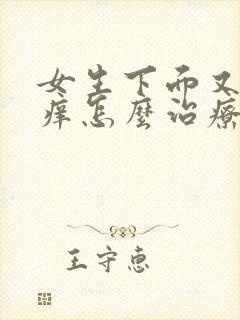 女生下而又
痒怎麼治療
王守惠